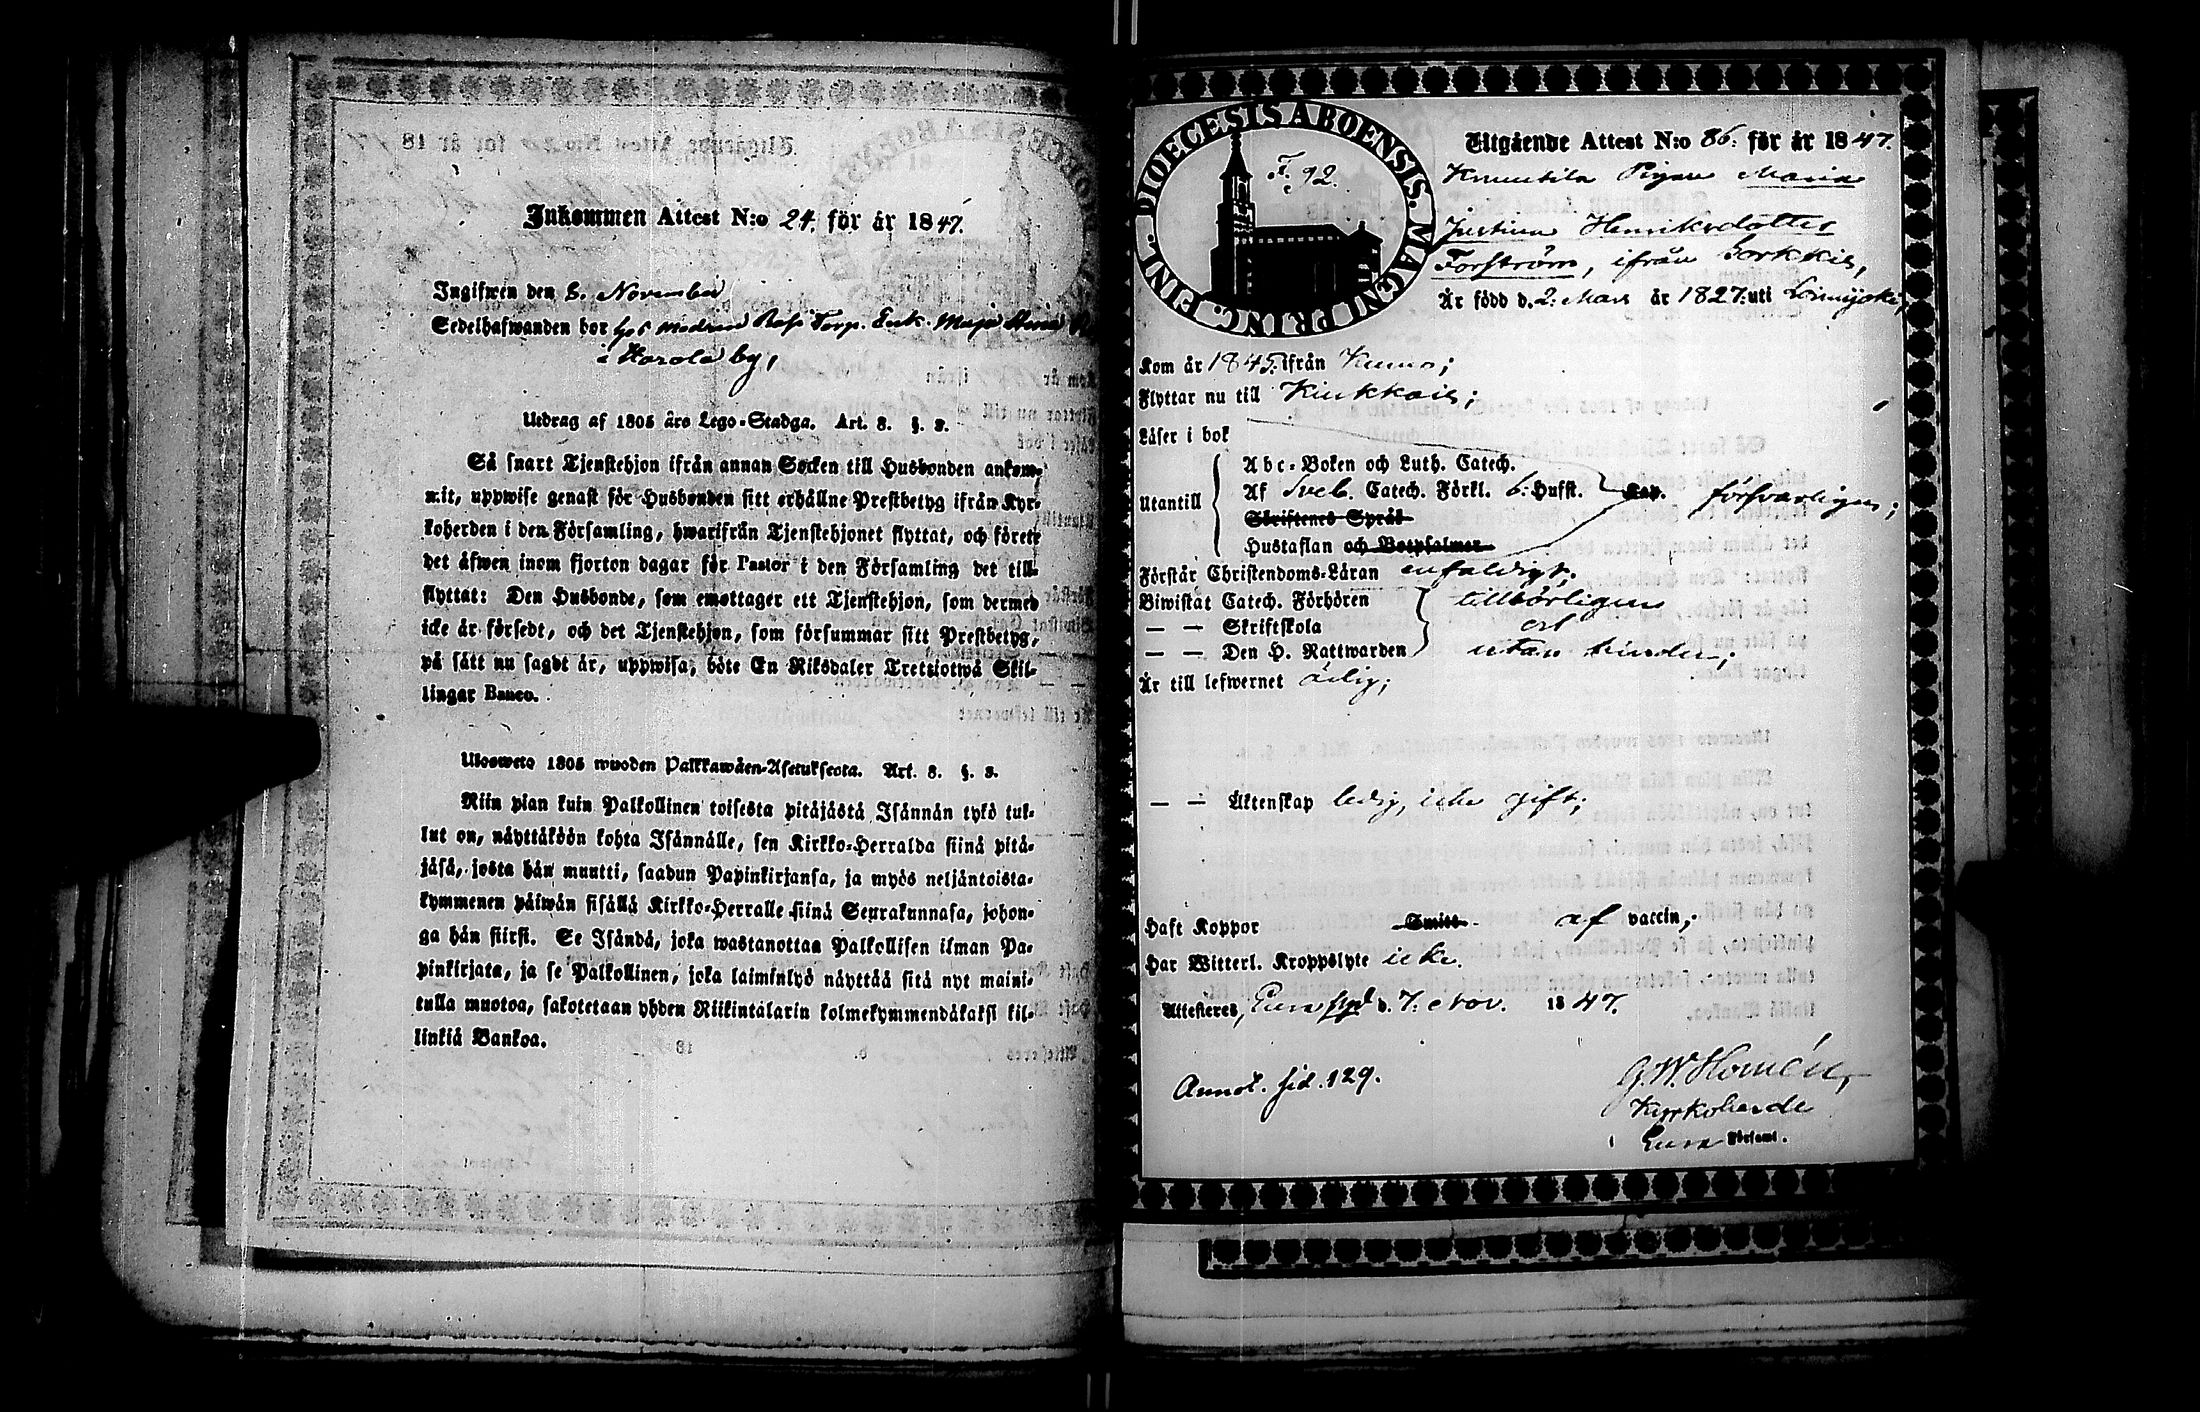 Inkommen Attest N:o 24. för år 1847.
Ingifwen den 8. November
Sedelhafwanden bor hos modren Torp. Enk. Maja
i Harola by,
Utdrag af 1805 års Lego-Stadga. Art. 8. §. 3.
Så snart Tjenstehjon ifrån annan Socken till Husbonden ankom-
mit, uppwise genast för Husbonden sitt erhållne Prestbetyg ifrån Kyr-
koherden i den Församling, hwarifrån Tjenstehjonet flyttat, och förete
det äfwen inom fjorton dagar för Pastor i den Församling det till-
flyttat: Den Husbonde, som emottager ett Tjenstehjon, som dermed
icke är försedt, och det Tjenstehjon, som försummar sitt Prestbetyg,
på sätt nu sagdt är, uppwisa, böte En Riksdaler Trettiotwå Skil-
lingar Banco.
Ulosweto 1805 wuoden Palkkawäen-Asetuksesta. Art. 8. §. 3.
Niin pian kuin Palkollinen toisesta pitäjästä Isännän tykö tul-
lut on, näyttäköön kohta Isännälle, sen Kirkko-Herralda siinä pitä-
jäsä, josta hän muutti, saadun Papinkirjansa, ja myös neljäntoista-
kymmenen päiwän sisällä Kirkko-Herralle siinä Seurakunnasa, johon-
ga hän siirsi. Se Isändä, joka wastanottaa Palkollisen ilman Pa-
pinkirjata, ja se Palkollinen, joka laiminlyö näyttää sitä nyt maini-
tulla muotoa, sakotetaan yhden Riikintalarin kolmekymmendäkaksi kil-
linkiä Bankoa.
DIOECESIS ABOENSIS. MAGNI PRINC. FINL.
F. 92.
Utgående Attest N:o 86: för år 1847.
Knuutila Pigan Maria
Justina Henriksdotter
Forström, ifrån Sorkkis,
Är född d. 2. Mars år 1827: uti Loimijoki,
Kom år 1845: ifrån Kumo;
Flyttar nu till Kiukkais;
Läser i bok
Utantill
Abc-Boken och Luth. Catech.
Af Sveb. Catech. Förkl. 6: Hufst. Kap. försvarligen;
Skriftenes Språk
Hustaflan och Botpsalmer
Förstår Christendoms-Läran enfaldigt;
Biwistat Catech. Förhören tillbörligen
— — Skriftskola och
— — Den H. Nattwarden utan hinder;
Är till lefwernet ärlig;
— — Äktenskap ledig, icke gift;
Haft Koppor Smitt- af vaccin;
Har Witterl. Kroppslyte icke.
Attesteras, Eura d. 7. Nov. 1847.
G. W. Homén,
Kyrkoherde
Eura Församl.
Annot. sid. 129.